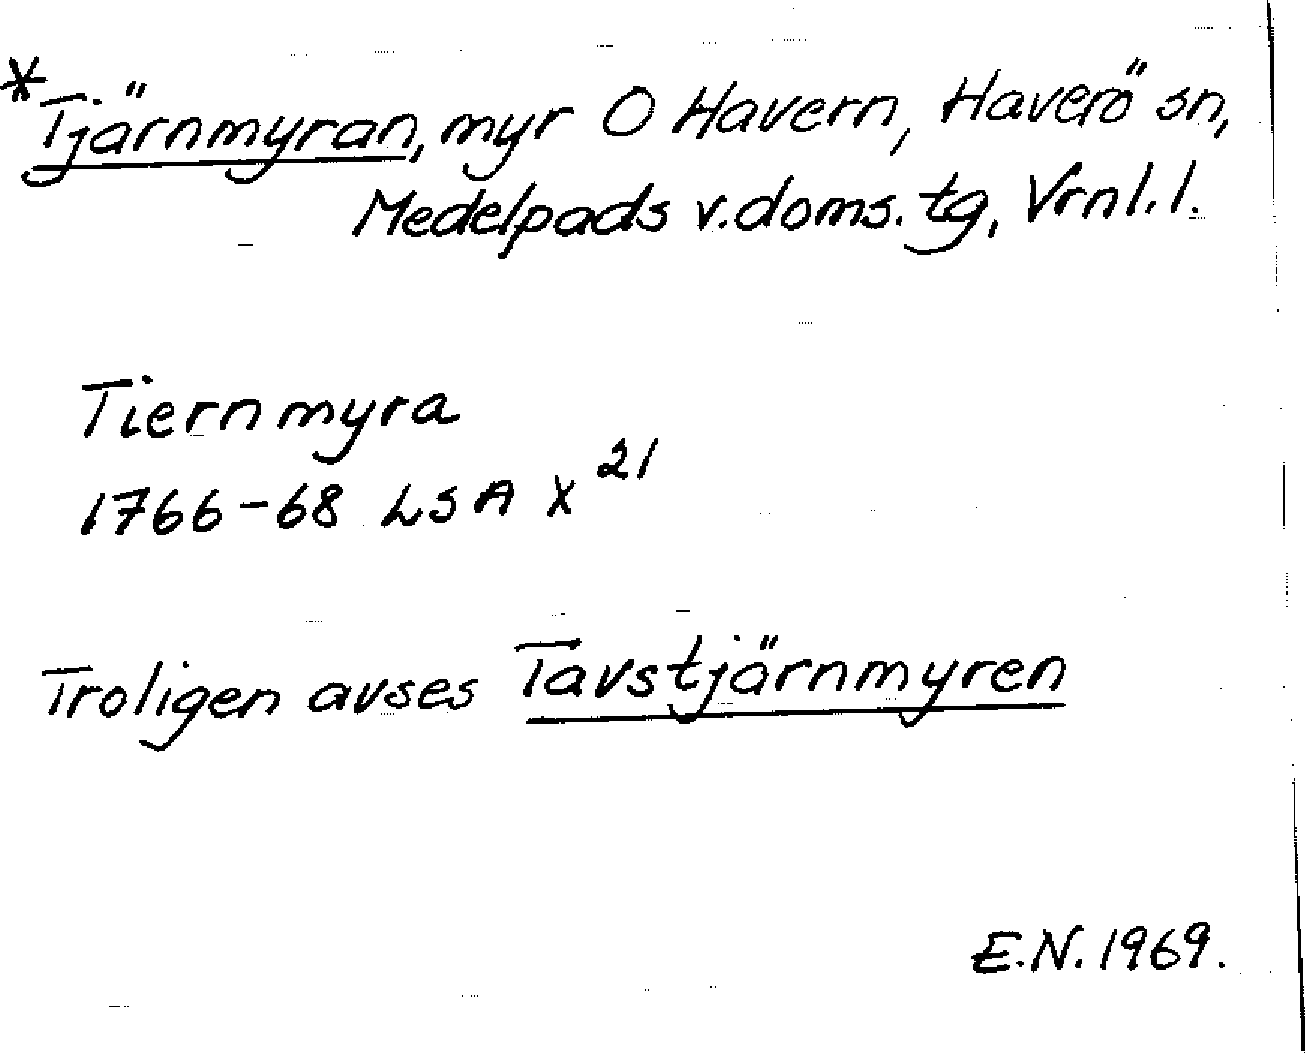 *Tjärnmyran, myr O Havern, Haverö sn,
Medelpads v.doms.tg, Vrnl.l.
Tiernmyra
1766-68 LSA X 21
Troligen avses Tavstjärnmyren
E.N. 1969.